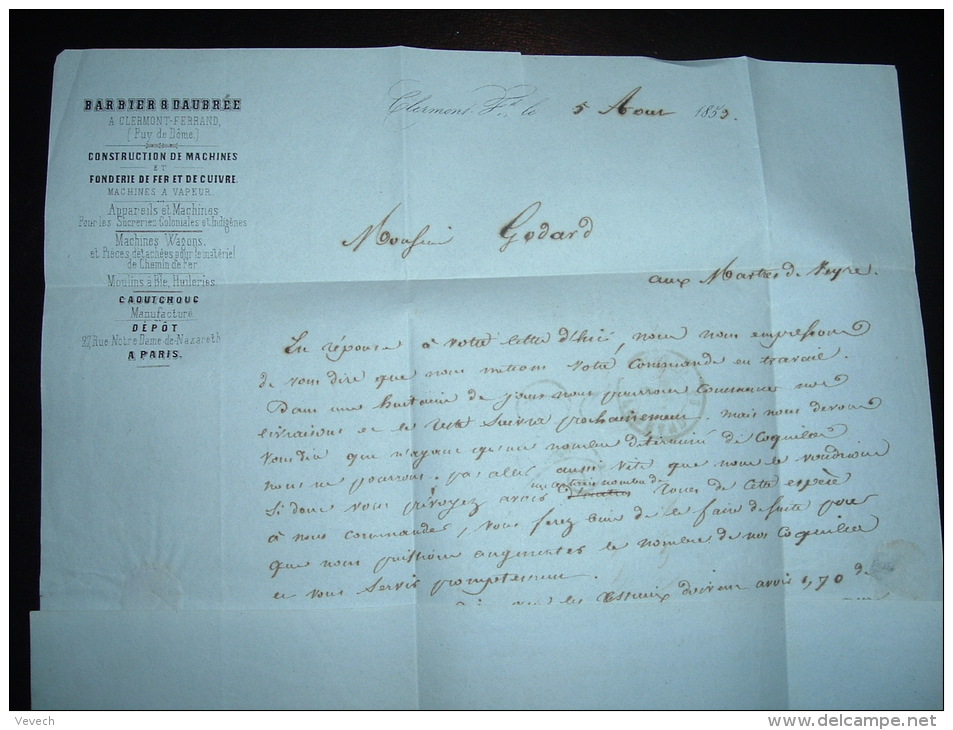 BARBIER & DAUBRÉE
A CLERMONT-FERRAND,
(Puy de Dôme.)
CONSTRUCTION DE MACHINES
ET
FONDERIE DE FER ET DE CUIVRE.
MACHINES A VAPEUR.
Appareils et Machines
Pour les Sucreries Coloniales et Indigènes
Machines Wagons,
et Pièces détachées pour le matériel
de Chemin de Fer
Moulins à Blé, Huileries.
CAOUTCHOUC
Manufacture
DÉPÔT
27, Rue Notre Dame-de-Nazareth
A PARIS.
Clermont-Fd, le 5 Aout 1853.
Monsieur Godard
aux Martres de Veyre.
En réponse à votre lettre d'hier, nous nous empressons
de vous dire que nous mettons votre commande en travail.
Dans une huitaine de jours nous pourrons commencer nos
livraisons et le reste suivra prochainement. mais nous devons
vous dire que n'ayant qu'un nombre déterminé de Coquilles
nous ne pourrons pas aller aussi vite que nous le voudrions
Si donc vous prévoyez avoir un certain nombre de roues de cette espèce
à nous commander, vous ferez bien de le faire de suite pour
que nous puissions augmenter le nombre de nos Coquilles
et vous servir promptement.
les Essieux doivent avoir 1,70 de
Vevech
www.delcampe.net